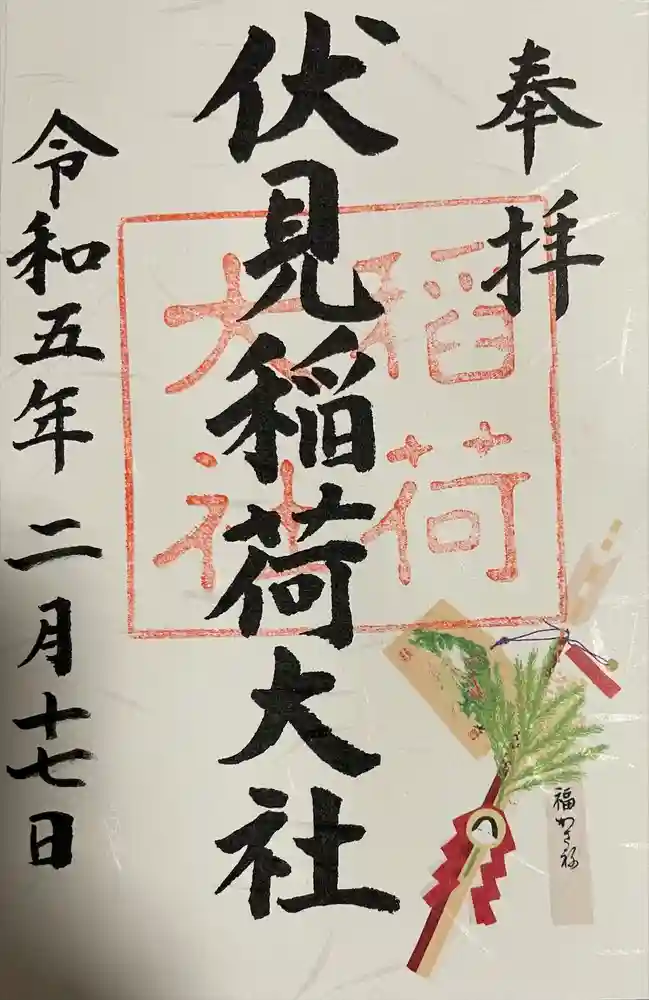 奉拝
伏見稲荷大社
稲荷
大社
令和五年二月十七日